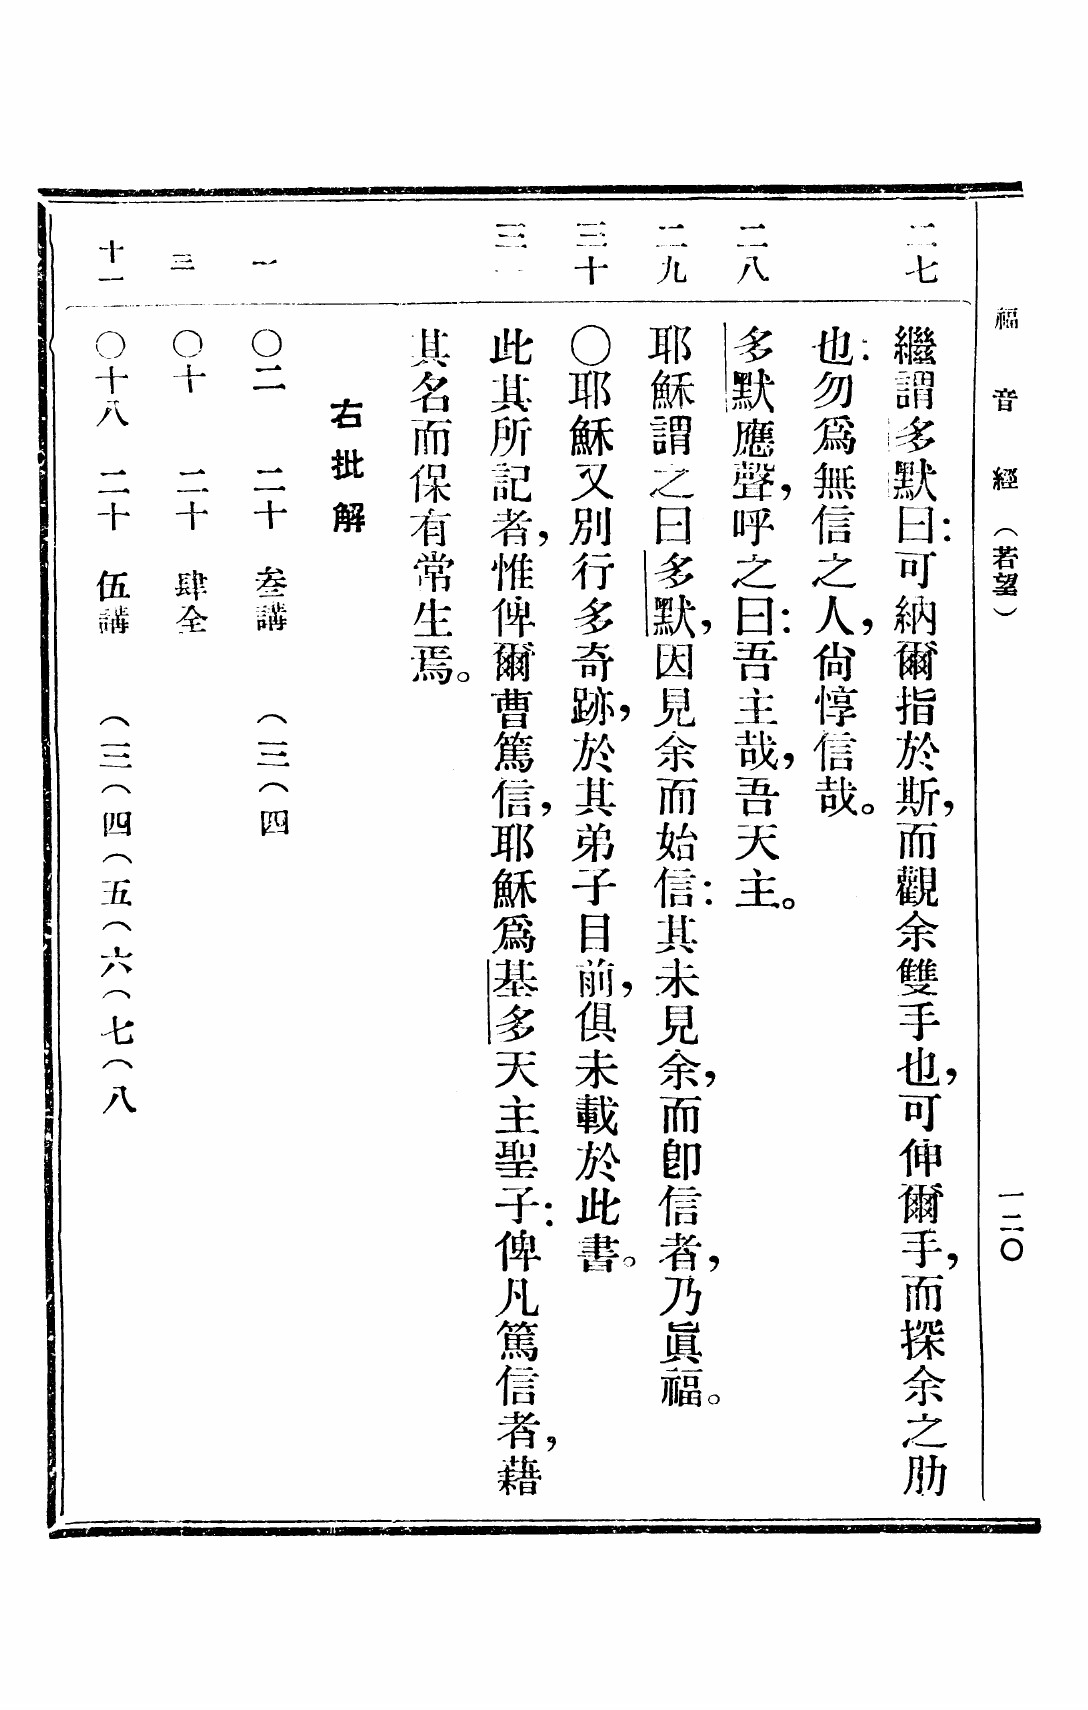 福音經（若望） 一二〇
二七 繼謂多默曰：可納爾指於斯，而觀余雙手也，可伸爾手，而探余之肋
也：勿爲無信之人，尙惇信哉。
二八 多默應聲，呼之曰：吾主哉，吾天主。
二九 耶穌謂之曰多默，因見余而始信：其未見余，而卽信者，乃眞福。
三十 〇耶穌又別行多奇跡，於其弟子目前，俱未載於此書。
三一 此其所記者，惟俾爾曹篤信，耶穌爲基多天主聖子：俾凡篤信者，藉
其名而保有常生焉。
右批解
一 〇二 二十 叁講 （三（四
三 〇十 二十 肆全
十一 〇十八 二十 伍講 （三（四（五（六（七（八